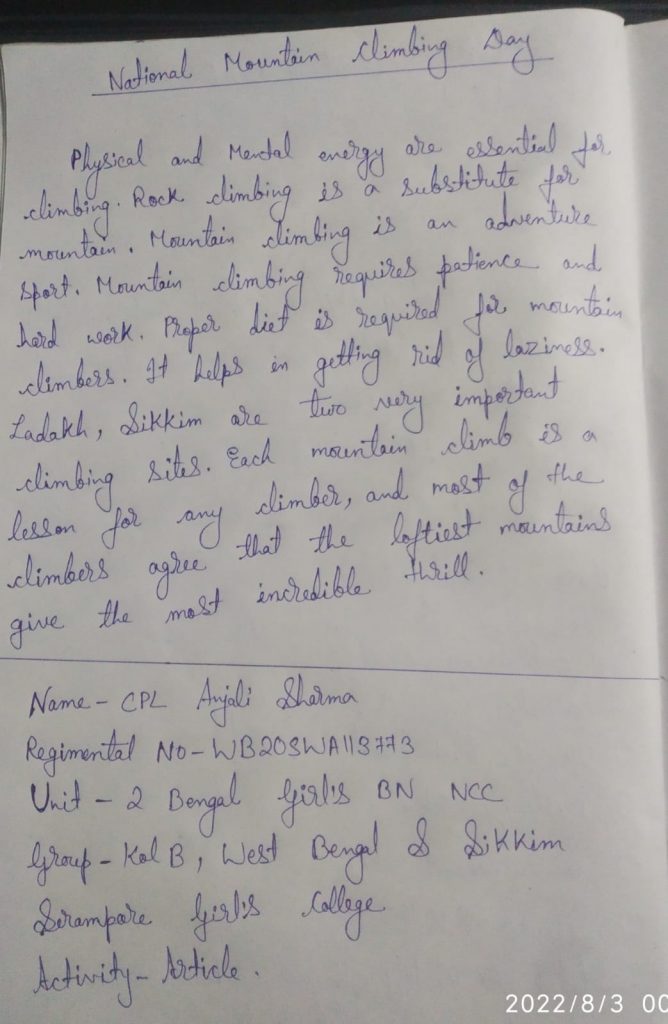 National Mountain Climbing Day
Physical and Mental energy are essential for
climbing. Rock climbing is a substitute for
mountain. Mountain climbing is an adventure
sport. Mountain climbing requires patience and
hard work. Proper diet is required for mountain
climbers. It helps in getting rid of laziness.
Ladakh, Sikkim are two very important
climbing sites. Each mountain climb is a
lesson for any climber, and most of the
climbers agree that the loftiest mountains
give the most incredible thrill.
Name - CPL Anjali Sharma
Regimental No - WB20SWA113773
Unit - 2 Bengal Girl's BN NCC
Group - Kol B, West Bengal & Sikkim
Serampore Girl's College
Activity - Article.
2022/8/3 00